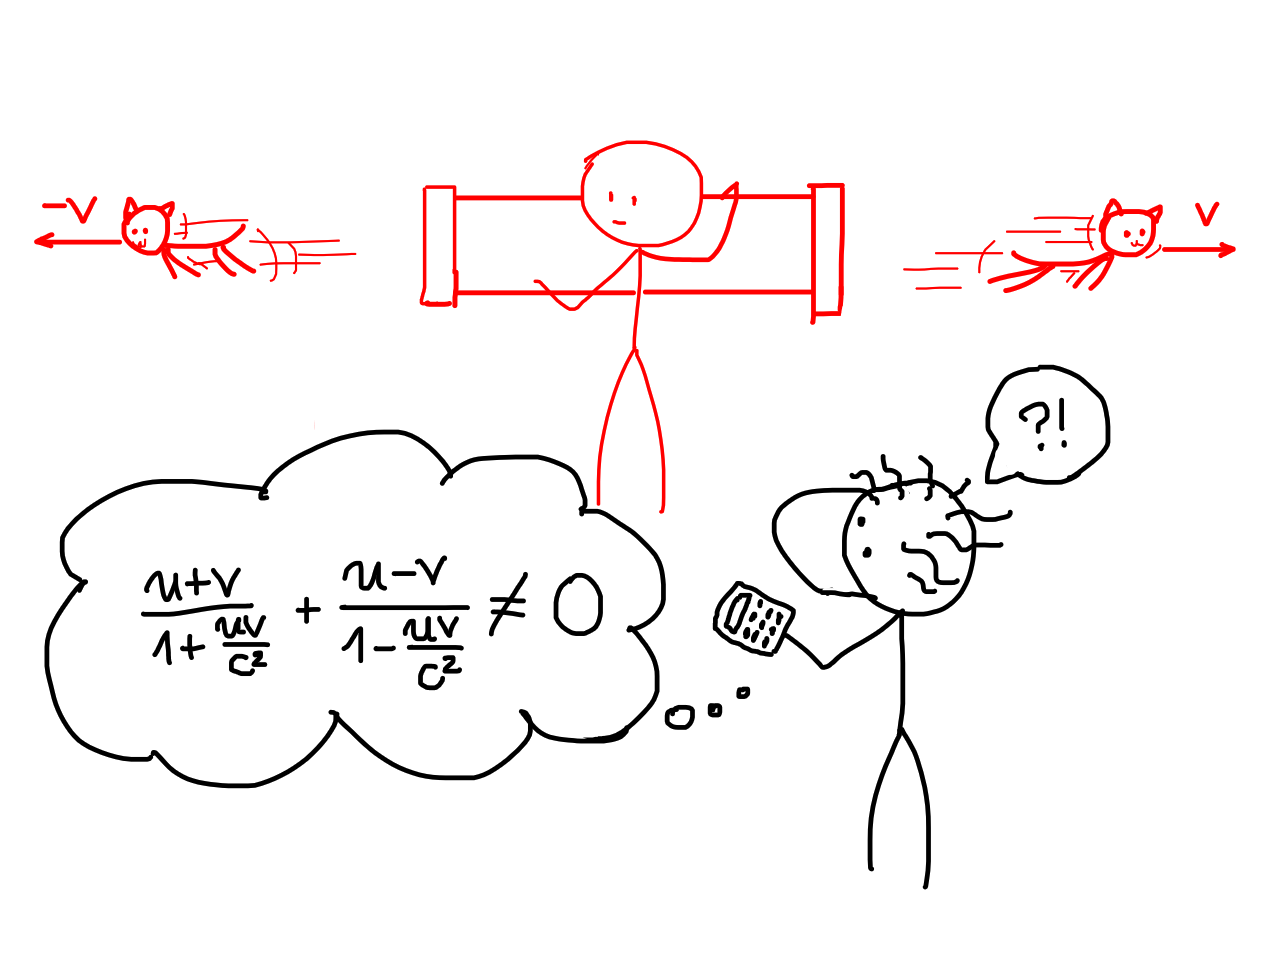 -v
v
?!
(u+v)/(1+uv/c²) + (u-v)/(1-uv/c²) ≠ 0